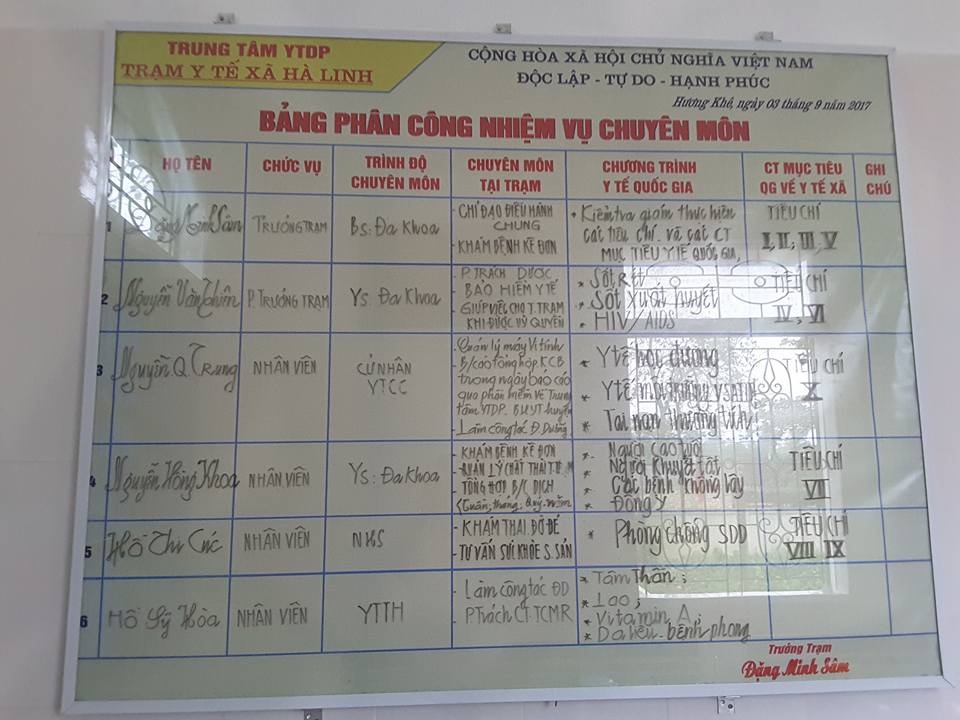 TRUNG TÂM YTDP
TRẠM Y TẾ XÃ HÀ LINH
CỘNG HÒA XÃ HỘI CHỦ NGHĨA VIỆT NAM
ĐỘC LẬP - TỰ DO - HẠNH PHÚC
Hương Khê, ngày 03 tháng 9 năm 2017
BẢNG PHÂN CÔNG NHIỆM VỤ CHUYÊN MÔN
HỌ TÊN
CHỨC VỤ
TRÌNH ĐỘ
CHUYÊN MÔN
CHUYÊN MÔN
TẠI TRẠM
CHƯƠNG TRÌNH
Y TẾ QUỐC GIA
CT MỤC TIÊU
QG VỀ Y TẾ XÃ
GHI
CHÚ
1
Đặng Minh Sâm
TRƯỞNG TRẠM
Bs: Đa Khoa
- CHỈ ĐẠO ĐIỀU HÀNH
CHUNG
- KHÁM BỆNH KÊ ĐƠN
* Kiểm tra giám thực hiện
các tiêu chí. và các CT
MỤC TIÊU Y TẾ QUỐC GIA,
TIÊU CHÍ
I, II, III, V
2
Nguyễn Văn Thiên
P. TRƯỞNG TRẠM
Ys: Đa Khoa
- P. TRÁCH DƯỢC
- BẢO HIỂM Y TẾ
- GIÚP VIỆC CHO T. TRẠM
KHI ĐƯỢC UỶ QUYỀN
* Sốt Rét
* Sốt xuất huyết
* HIV/AIDS
TIÊU CHÍ
IV, VI
3
Nguyễn Q. Trung
NHÂN VIÊN
CỬ NHÂN
YTCC
- Quản lý máy Vi tính
- B/cáo tổng hợp KCB
trong ngày báo cáo
qua phần mềm về Trung
tâm YTDP. BHYT huyện
- Làm công tác Đ. Dưỡng
* Y tế học đường
* Y tế môi trường VSATTP
* Tai nạn thương tích
TIÊU CHÍ
X
4
Nguyễn Hồng Khoa
NHÂN VIÊN
Ys: Đa Khoa
- KHÁM BỆNH KÊ ĐƠN
- QUẢN LÝ CHẤT THẢI
- TỔNG HỢP B/C DỊCH
(Tuần, tháng, Quý, năm
* Người cao tuổi
* Người khuyết tật
* Các bệnh không lây
* Đông Y
TIÊU CHÍ
VII
5
Hồ Thị Cúc
NHÂN VIÊN
NHS
- KHÁM THAI. ĐỠ ĐẺ
- TƯ VẤN SỨC KHỎE S. SẢN
* Phòng chống SDD
TIÊU CHÍ
VIII IX
6
Hồ Sỹ Hòa
NHÂN VIÊN
YTTH
- Làm công tác ĐD
- P.Trách CT. TCMR
* Tâm Thần;
* Lao;
* Vitamin A;
* Da liễu. bệnh phong
Trưởng Trạm
Đặng Minh Sâm